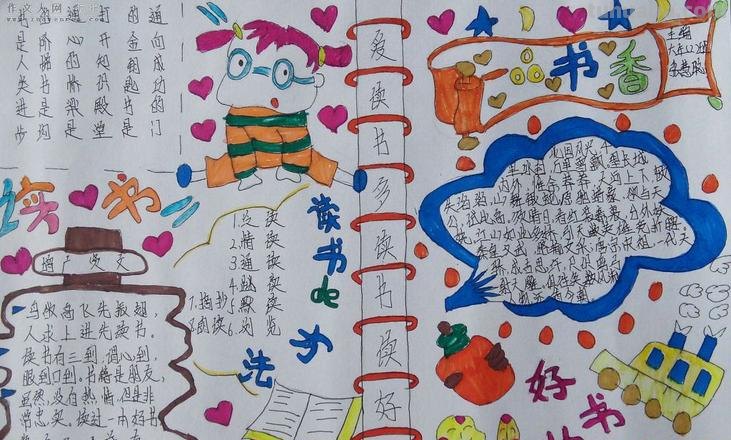 作文人网
书是人类进步
的阶梯书是沟
通心的桥梁是
打开知识殿堂
的金钥匙书是
通向成功的门
读书
鸟欲高飞先振翅,
人求上进先读书。
读书有三到,谓心到,
眼到口到。书籍是朋友,
虽然没有热情,但是非
常忠实。读过一本好书,
读书de方法
1.泛读
2.精读
3.通读
4.跳读
7.摘抄 5.默读
6.浏览
爱读书多读书读好
品书香
主编
北国风光,千
里冰封,万里雪飘。望长城
内外,惟余莽莽,大河上下,顿
失滔滔。山舞银蛇,原驰蜡象,欲与天
公试比高。须晴日,看红装素裹,分外妖
娆。江山如此多娇,引无数英雄竞折腰。
惜秦皇汉武,略输文采,唐宗宋祖,一代天
好书